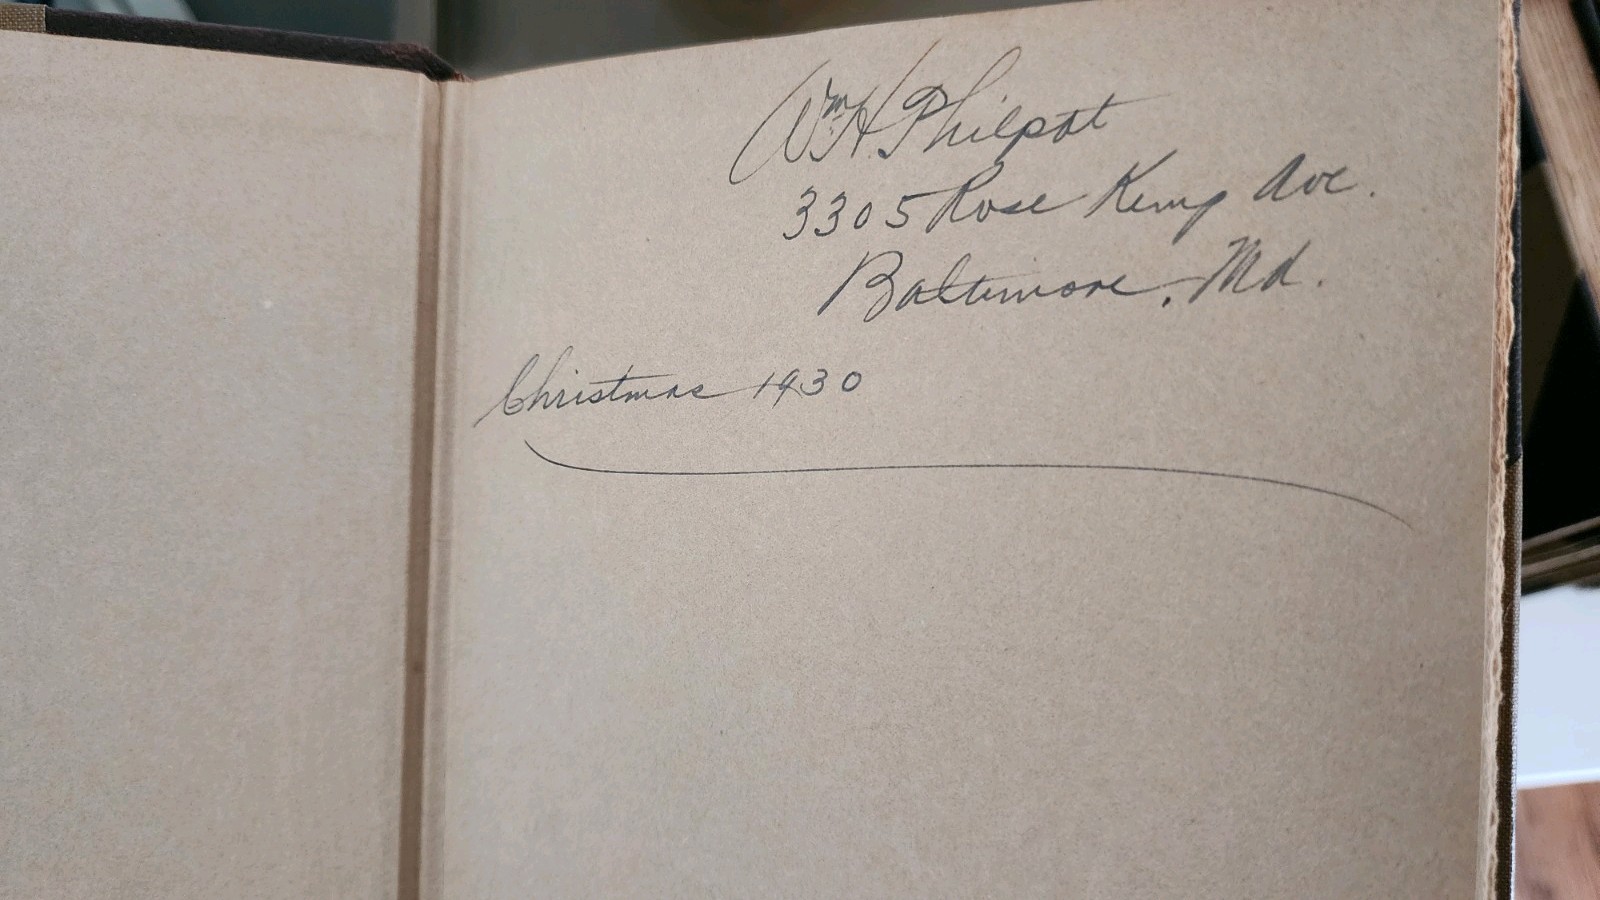 Wm H. Philpot
3305 Rose Kemp Ave.
Baltimore, Md.
Christmas 1930